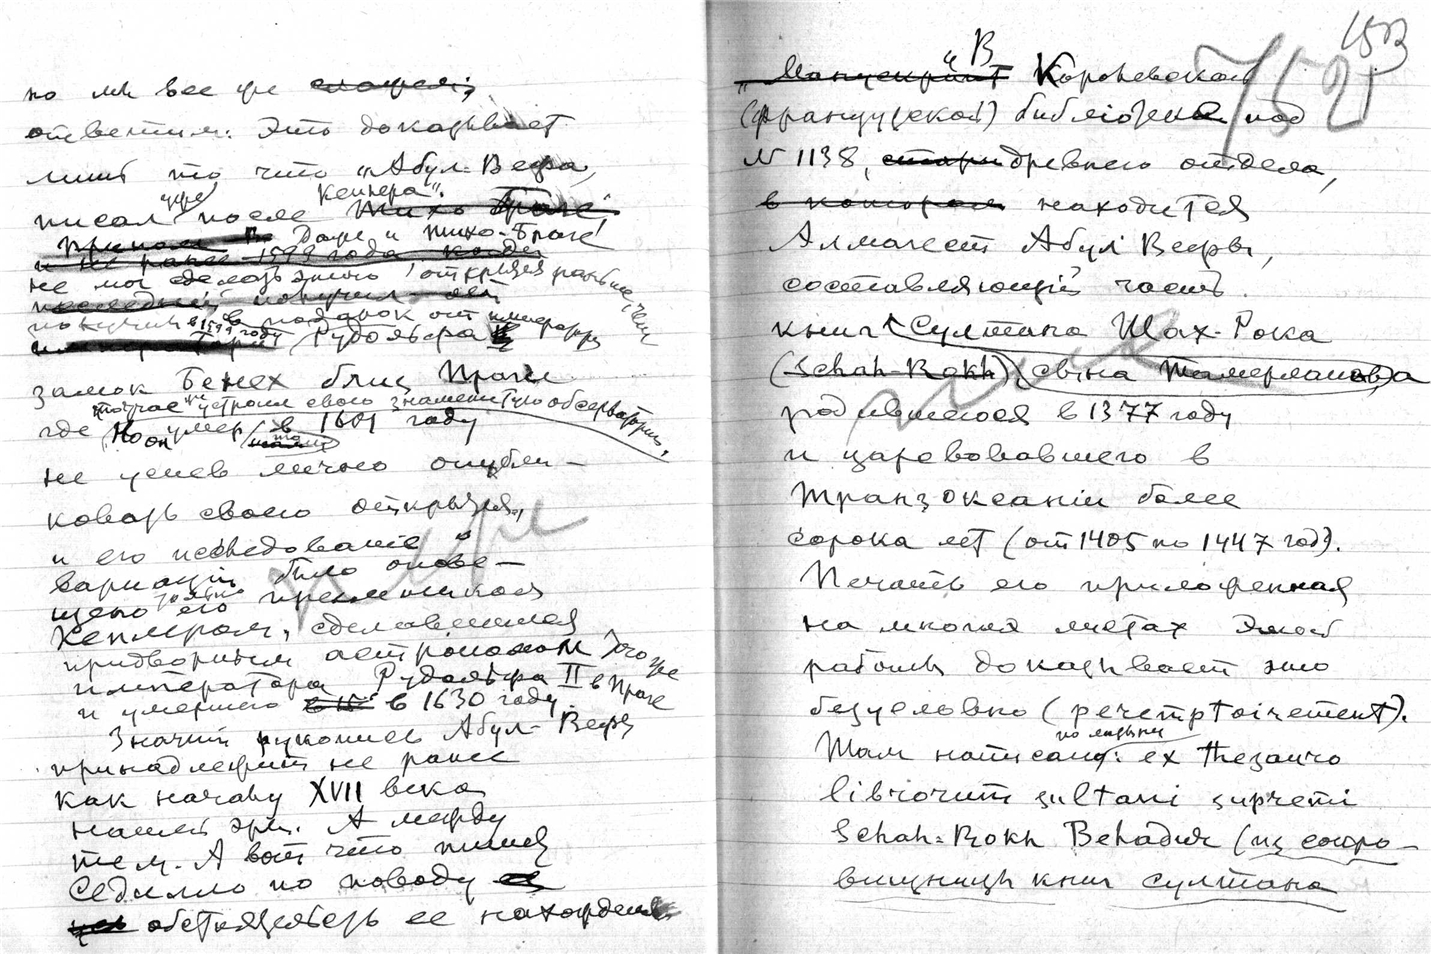 но мы все же
ответим: Это доказывает
лишь то что "Абул-Вефа,
писал уже после Кеплера".
Даже и Тихо-Браге
не мог сделать этого открытия раньше чем
получил в 1599 году в подарок от императора
Рудольфа
замок Бенех близ Праги
где тотчас же устроил свою знаменитую обсерваторию,
Но он умер в 1601 году
не успев лично опубли-
ковать своего открытия,
и его исследование
вариации было опове-
щено только его преемником
Кеплером, сделавшимся
придворным астрономом того же
императора Рудольфа II в Праге
и умершего в 1630 году.
Значит рукопись Абул-Вефы
принадлежит не ранее
как началу XVII века
нашей эры. А между
тем. А вот что пишет
Седилло по поводу
обстоятельств ее нахождения
153
752
"В Королевской
(французской) библіотеке под
N 1138, древнего отдела,
находится
Алмагест Абул Вефы,
составляющій часть
книг Султана Шах-Рока
(Schah-Rokh) сына Тамерлана
родившегося в 1377 году
и царевовавшего в
Транзоксаніи более
сорока лет (от 1405 по 1447 год).
Печать его приложенная
на многих листах этой
работы доказывает это
безусловно (péremptoirement).
Там написано: по латыни ex thezauro
librorum zultani zupremi
Schah-Rokh Behadur (из сокро-
вищницы книг султана